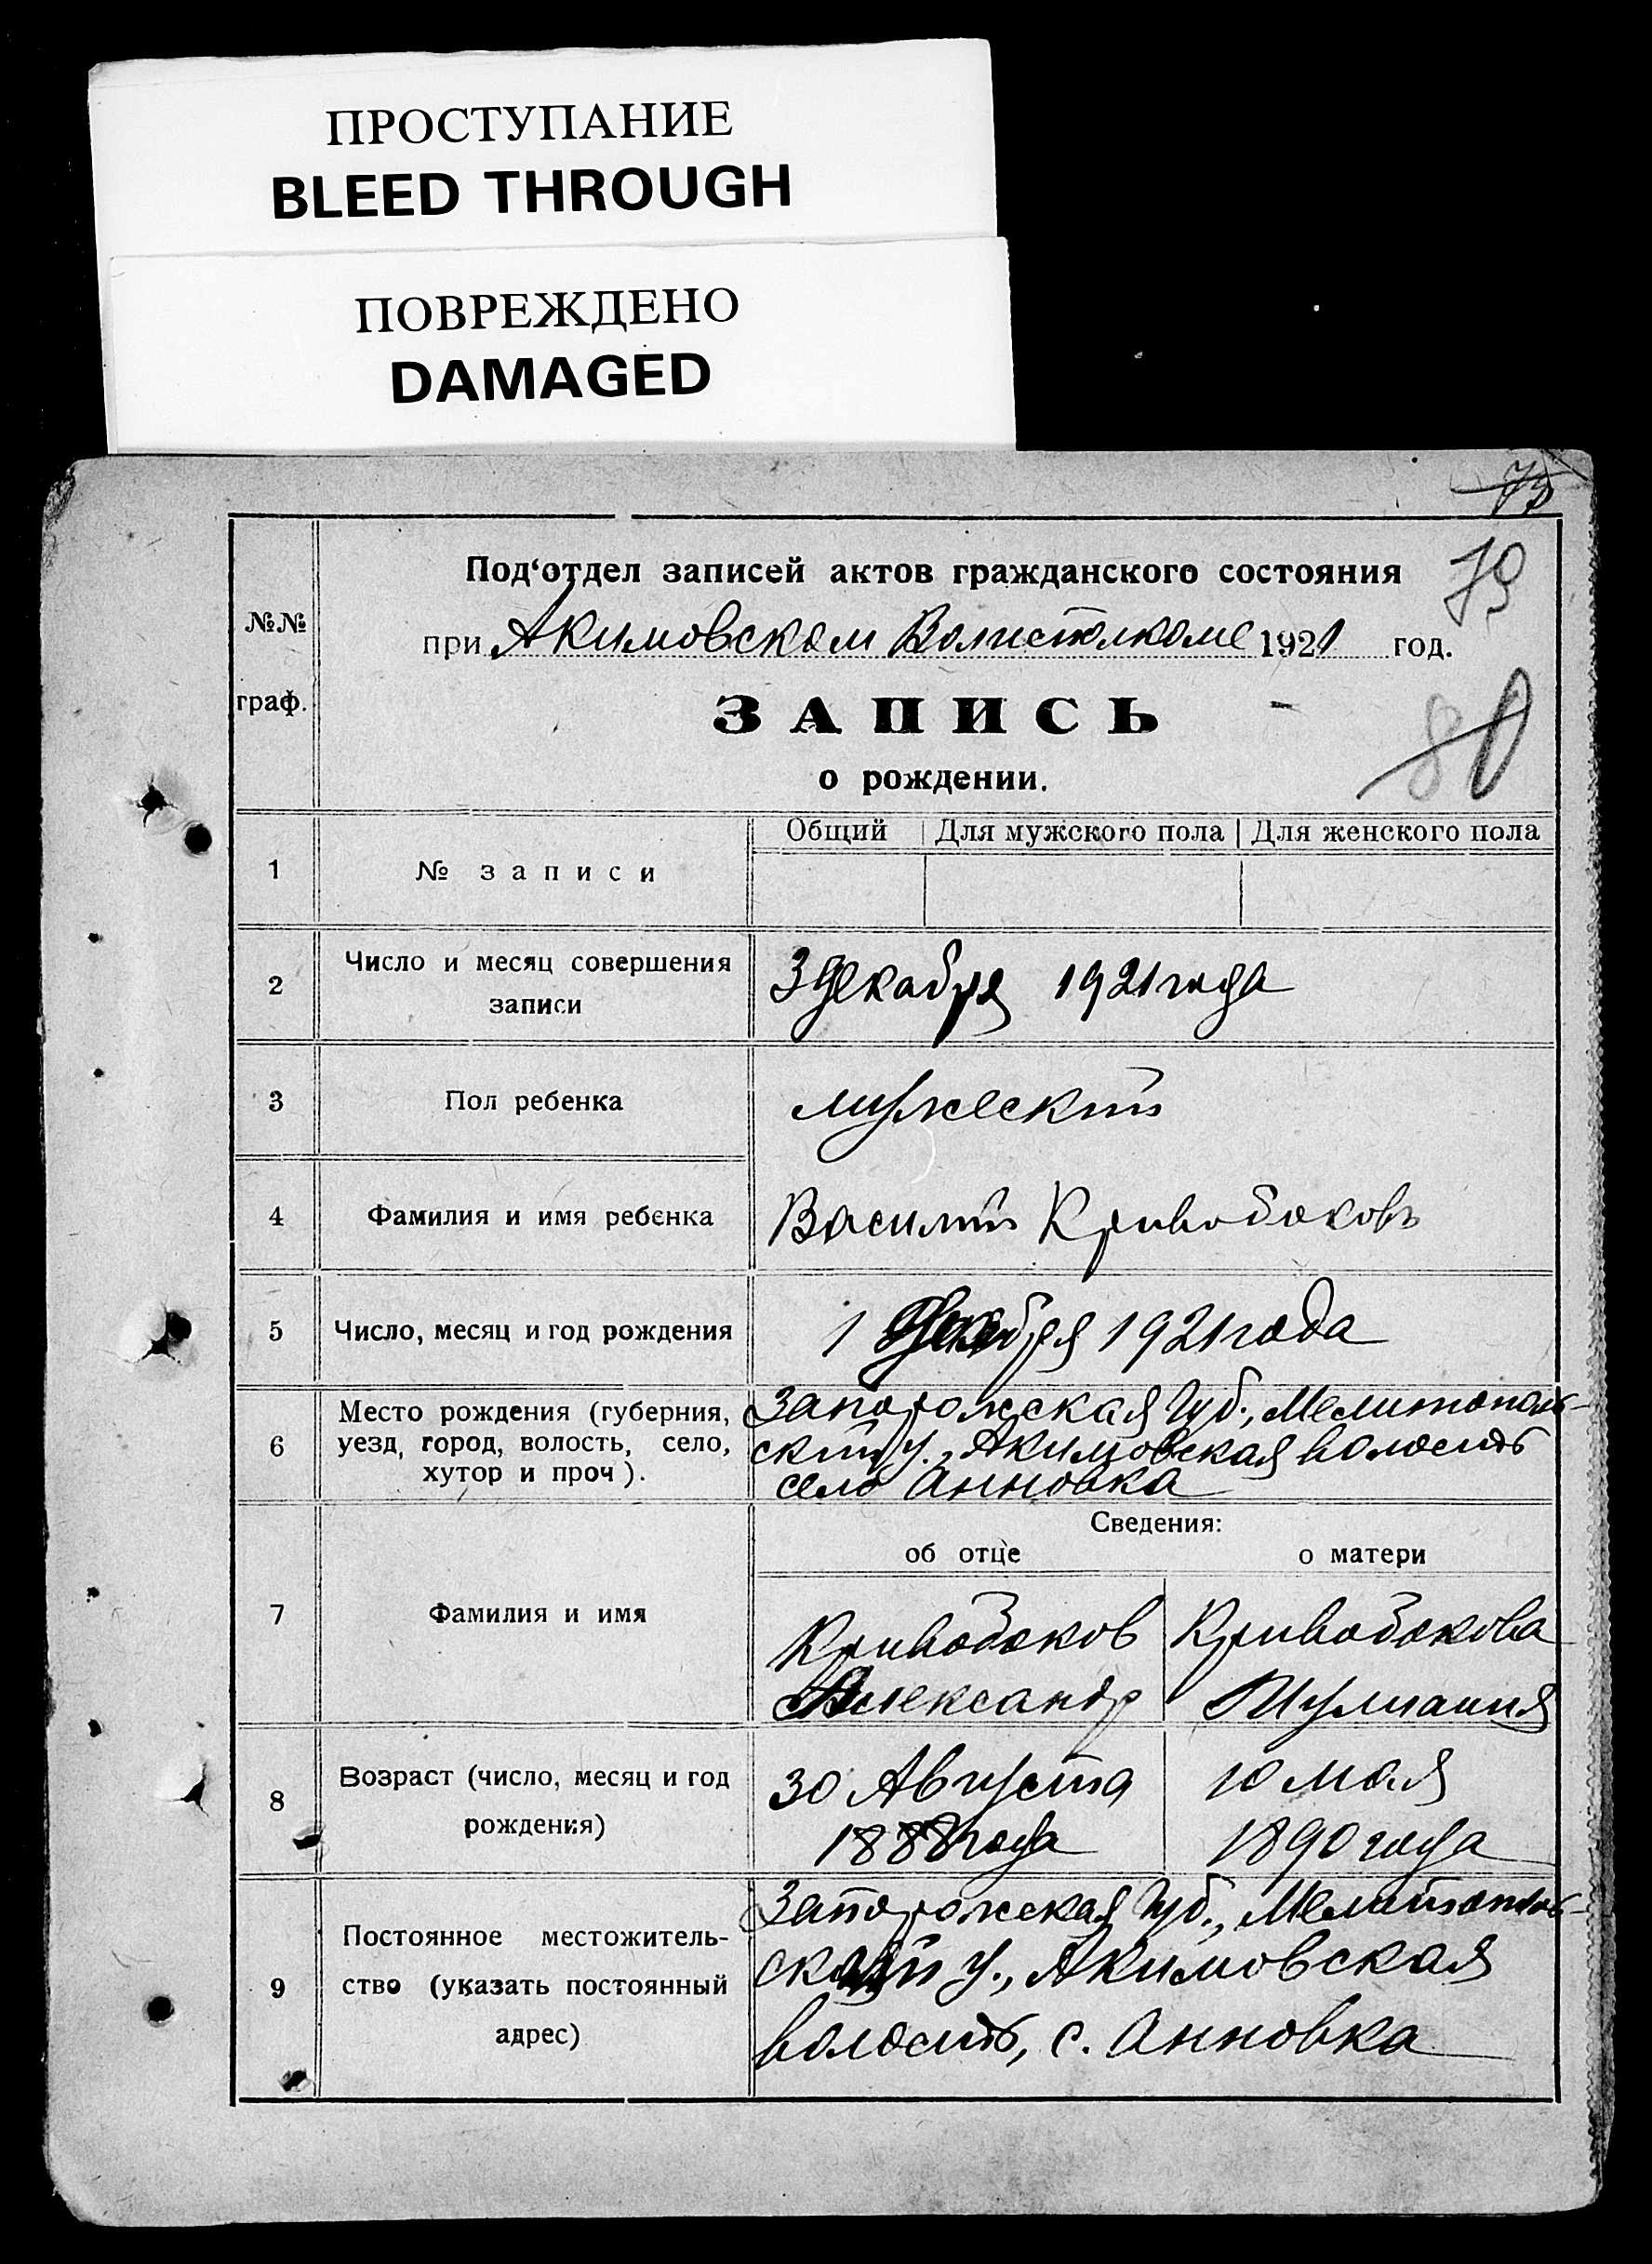 ПРОСТУПАНИЕ
BLEED THROUGH
ПОВРЕЖДЕНО
DAMAGED
75
Под‘отдел записей актов гражданского состояния
79
№№
при Акимовском Волисполкоме 1921 год.
граф.
ЗАПИСЬ
80
о рождении.
Общий Для мужского пола Для женского пола
1 № записи
2 Число и месяц совершения
записи
3 декабря 1921 года
3 Пол ребенка мужеский
4 Фамилия и имя ребенка Василий Кривобоковъ
5 Число, месяц и год рождения 1 декабря 1921 года
6 Место рождения (губерния,
уезд, город, волость, село,
хутор и проч).
Запорожская Губ., Мелитополь-
ский у., Акимовская волость
село Анновка
Сведения:
об отце о матери
7 Фамилия и имя
Кривобоков Кривобокова
Александр
8 Возраст (число, месяц и год
рождения)
30 Августа 10 мая
1888 года 1890 года
9 Постоянное местожитель-
ство (указать постоянный
адрес)
Запорожская Губ., Мелитополь-
ский у., Акимовская
волость, с. Анновка